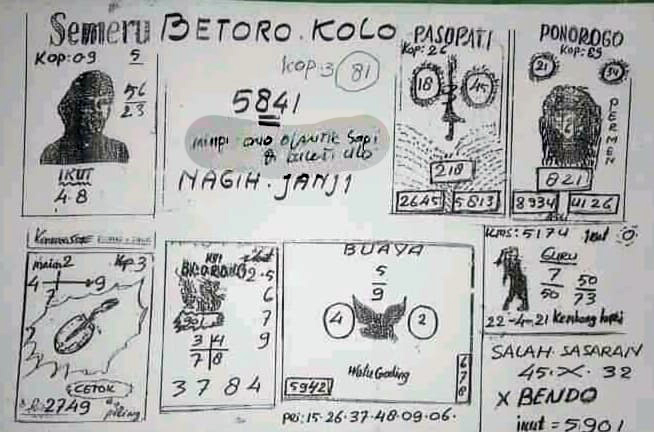 Semeru
KOP:09
5
56
23
IKUT
4.8
BETORO.KOLO
KOP:3 81
5841
NAGIH.JANJI
PASOPATI
KOP:26
18
45
218
2645
5813
PONOROGO
KOP:89
21
PERMEN
821
8934
4126
main2 Kop.3
4 9
7
CETOK
2749
2.5
6
7
9
3 4
7 8
3784
BUAYA
5
9
4
2
Watu Gading
5942
678
Pei:15.26.37.48.09.06.
Kms:5174
GURU
7
50
50
73
22-4-21 Kembang kopi
SALAH.SASARAN
45.X.32
X BENDO
ikut = 5901